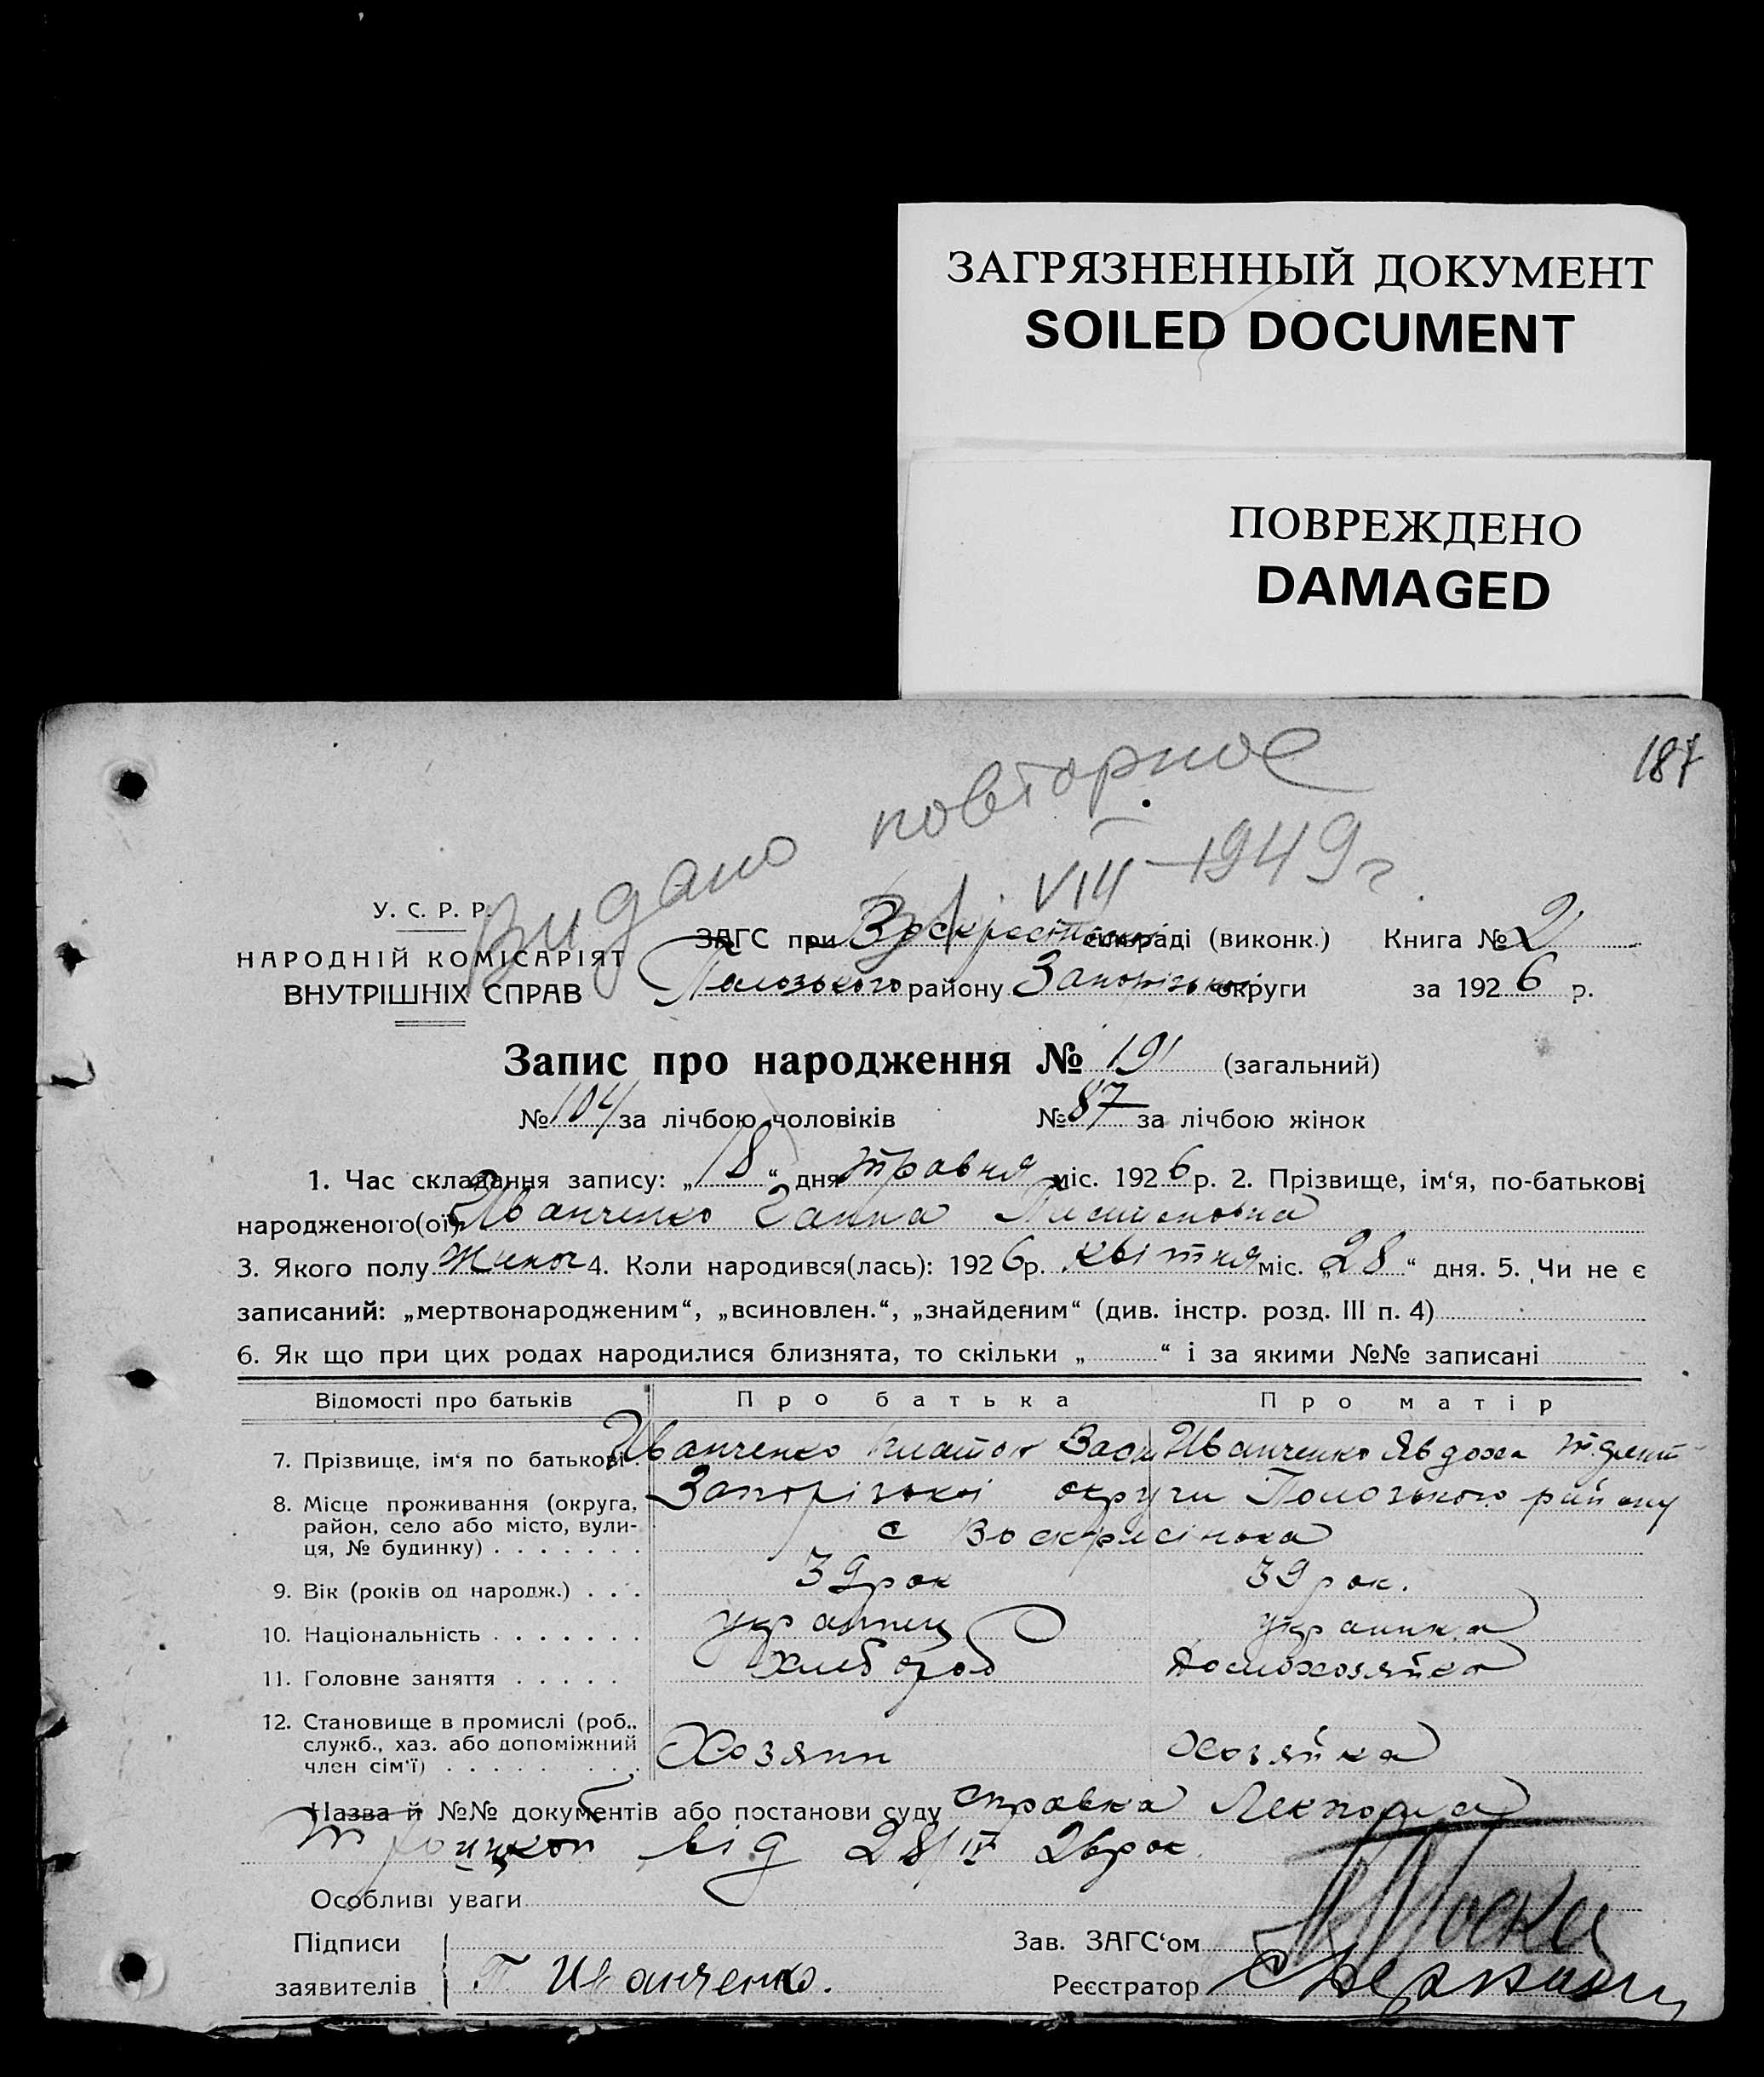 ЗАГРЯЗНЕННЫЙ ДОКУМЕНТ
SOILED DOCUMENT
ПОВРЕЖДЕНО
DAMAGED
187
Видано повторное
VIII - 1949 г.
У. С. Р. Р.
НАРОДНІЙ КОМІСАРІЯТ
ВНУТРІШНІХ СПРАВ
ЗАГС при сільраді (виконк.) Книга № 2
Пологського району Запорізької округи за 1926 р.
Запис про народження № 191 (загальний)
№ 104 за лічбою чоловіків № 87 за лічбою жінок
1. Час складання запису: „18“ дня травня міс. 1926 р. 2. Прізвище, ім‘я, по-батькові
народженого(ої) Иванченко Ганна
3. Якого полу 4. Коли народився(лась): 1926 р. квітня міс. „28“ дня. 5. Чи не є
записаний: „мертвонародженим“, „всиновлен.“, „знайденим“ (див. інстр. розд. III п. 4)
6. Як що при цих родах народилися близнята, то скільки „ “ і за якими №№ записані
Відомості про батьків Про батька Про матір
7. Прізвище, ім‘я по батькові Иванченко Платон Васи Иванченко Явдоха
8. Місце проживання (округа, район, село або місто, вулиця, № будинку) Запорізької округи Пологського району
с Воскресінька
9. Вік (років од народж.) 39 рок 39 рок.
10. Національність украинец украинка
11. Головне заняття хлебороб домохозяйка
12. Становище в промислі (роб., служб., хаз. або допоміжний член сім‘ї) Хозяин хозяйка
Назва й №№ документів або постанови суду справка Лекпома
від 28/IV 26 рок.
Особливі уваги
Підписи
заявителів П. Иванченко.
Зав. ЗАГС‘ом
Реєстратор